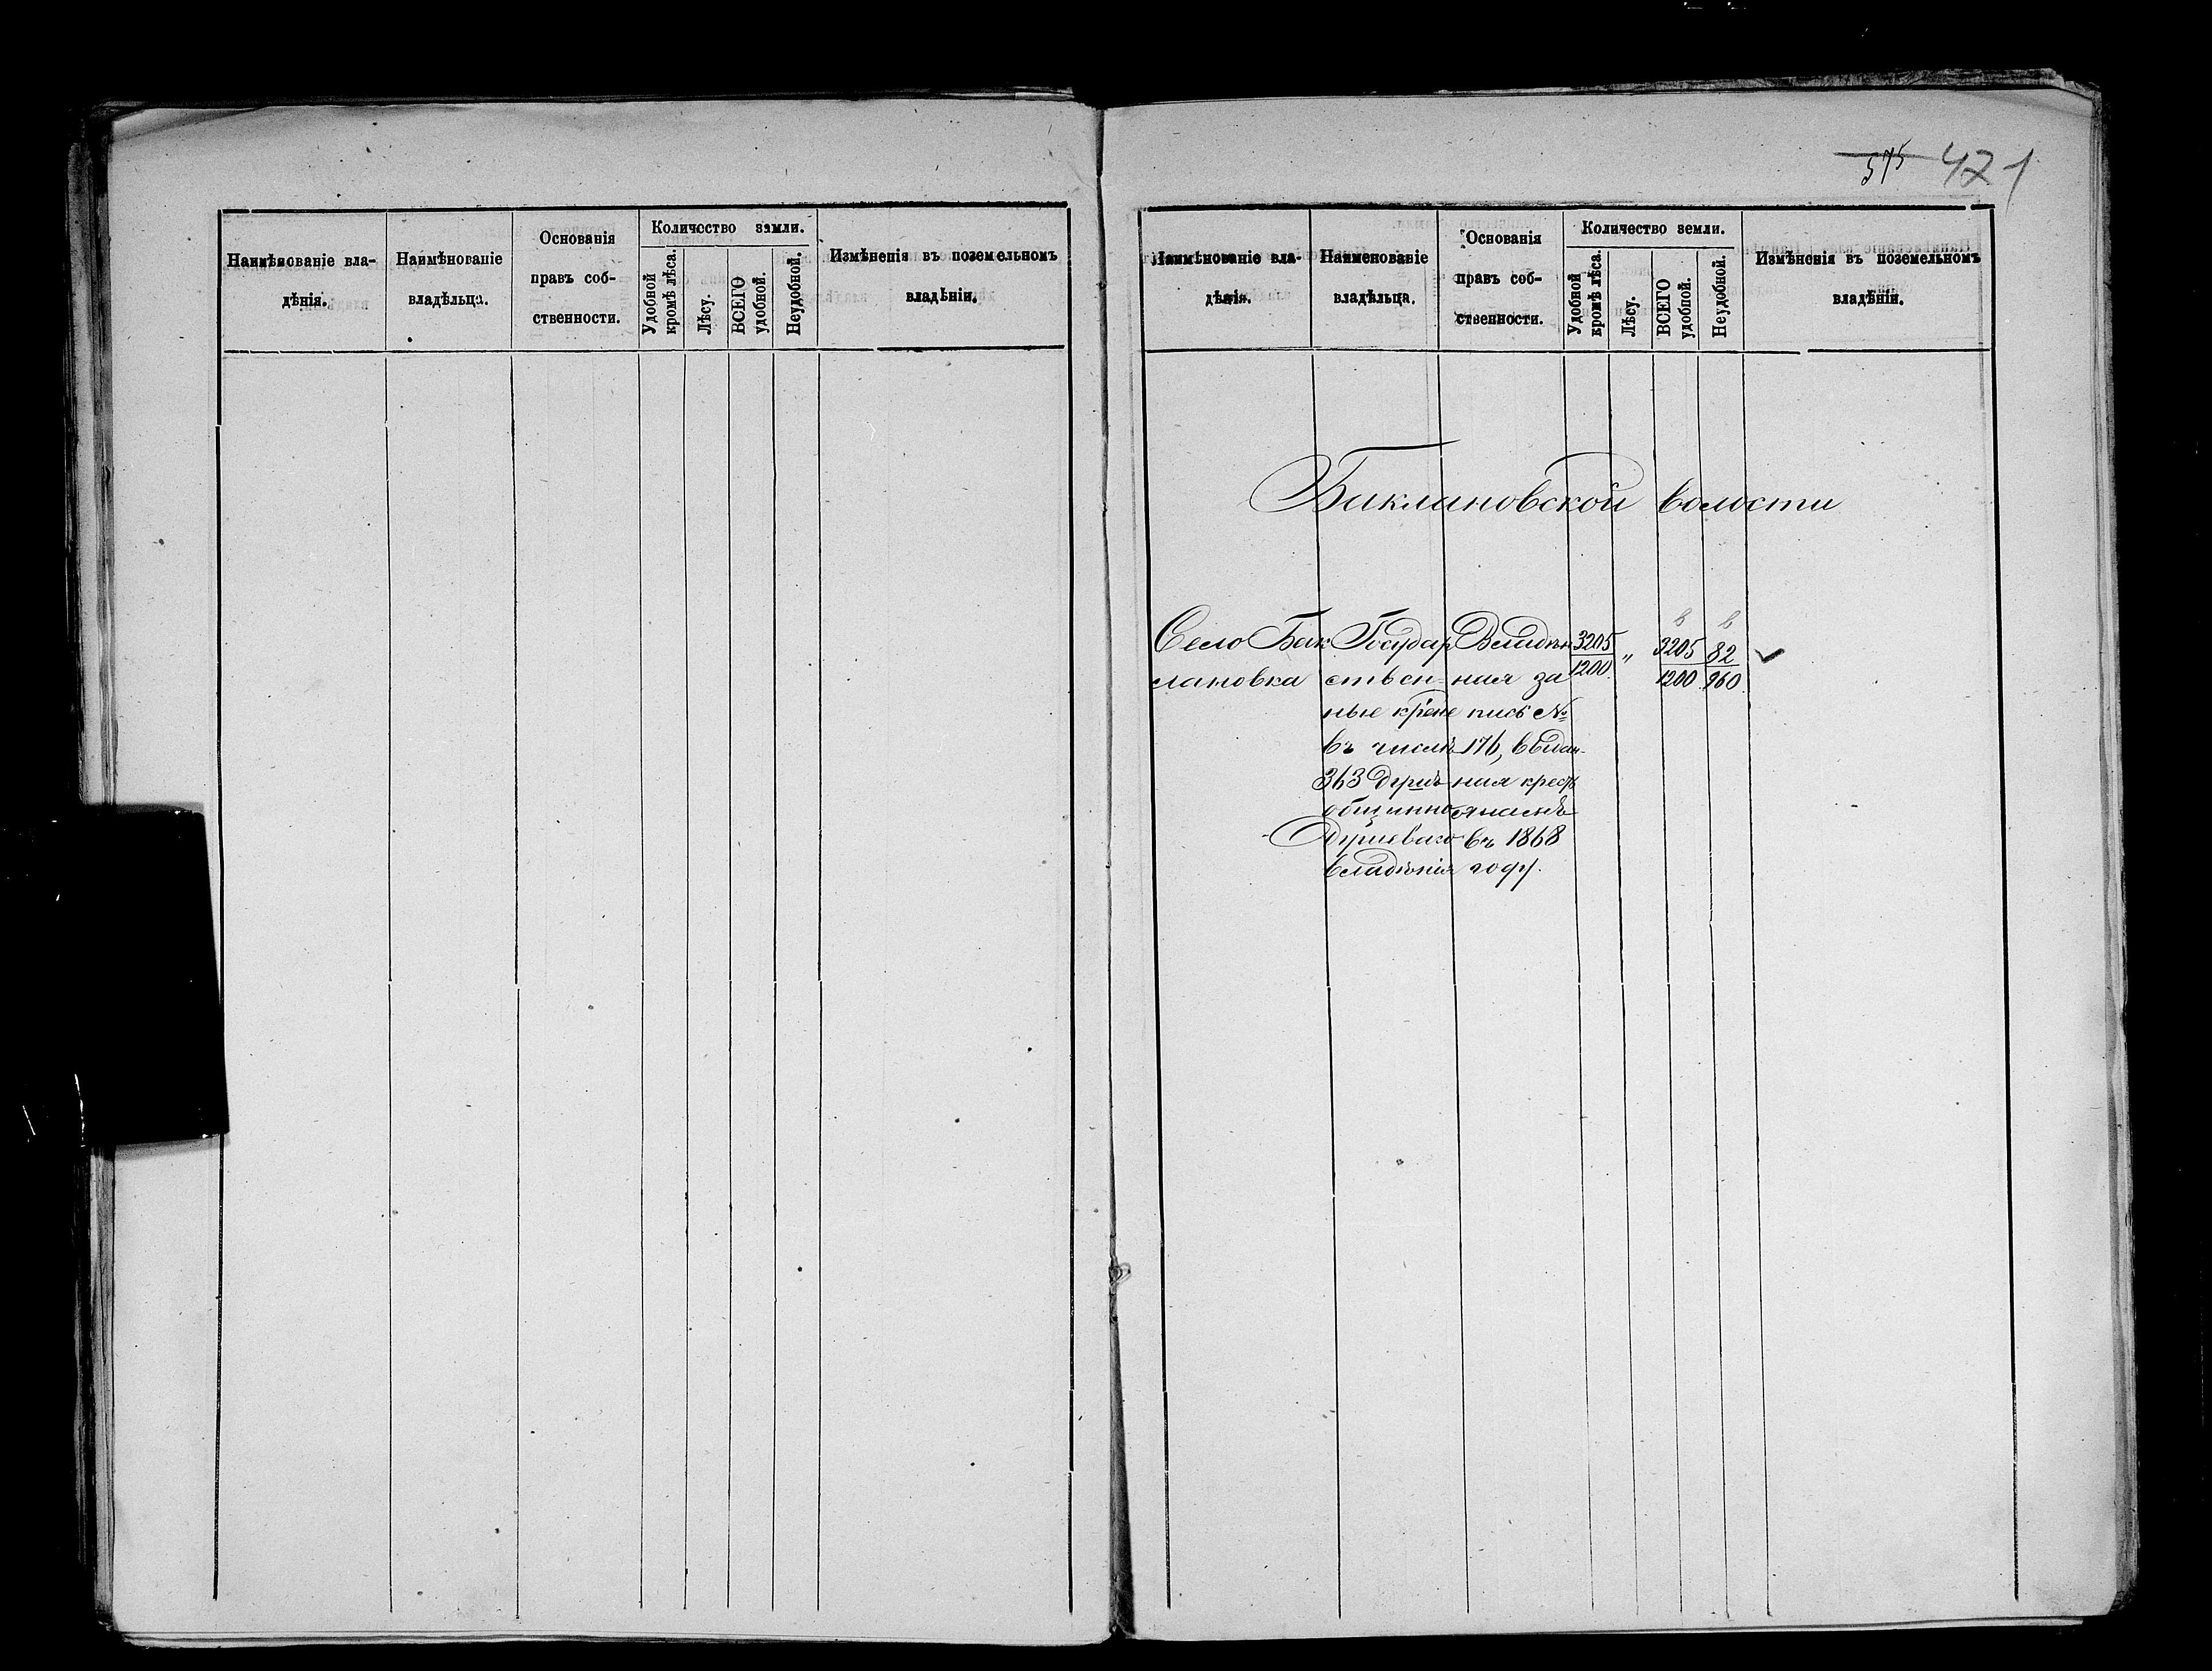 Наимѣнованіе вла-
дѣнія.
Наимѣнованіе
владѣльца.
Основанія
правъ соб-
ственности.
Количество земли.
Удобной
кромѣ лѣса.
Лѣсу.
ВСЕГО
удобной.
Неудобной.
Измѣненія въ поземельномъ
владѣніи.
575 421
Наимѣнованіе вла-
дѣнія.
Наименованіе
владѣльца.
Основанія
правъ соб-
ственности.
Количество земли.
Удобной
кромѣ лѣса.
Лѣсу.
ВСЕГО
удобной.
Неудобной.
Измѣненія въ поземельномъ
владѣніи.
Баклановской волости
Село Бак
лановка
Государ
ствен-
ные крѣпе
въ числѣ
363 душъ
общинно
душеваго
владѣнія
Владѣн
ная за
пись №
176, выдан-
ная кресть
янамъ
въ 1868
году.
3205
1200
"
3205
1200
82
960